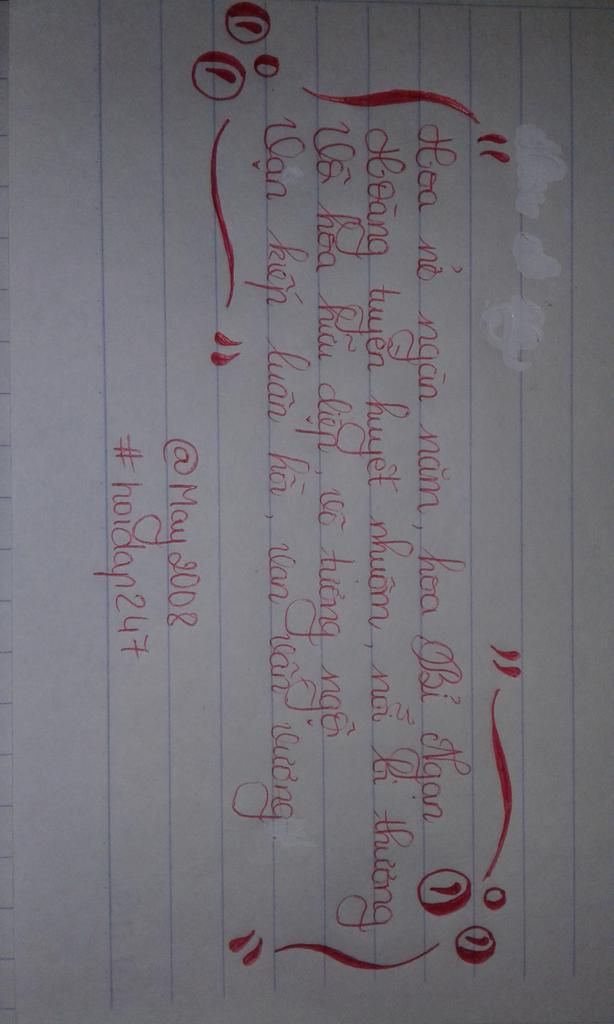 Hoa nở ngàn năm, hoa Bỉ Ngạn
Hoàng tuyền huyết nhuộm, nỗi bi thương
Vô hoa hữu diệp, vô tương ngộ
Vạn kiếp luân hồi, vạn vấn vương.
@May2008
#hoidap247